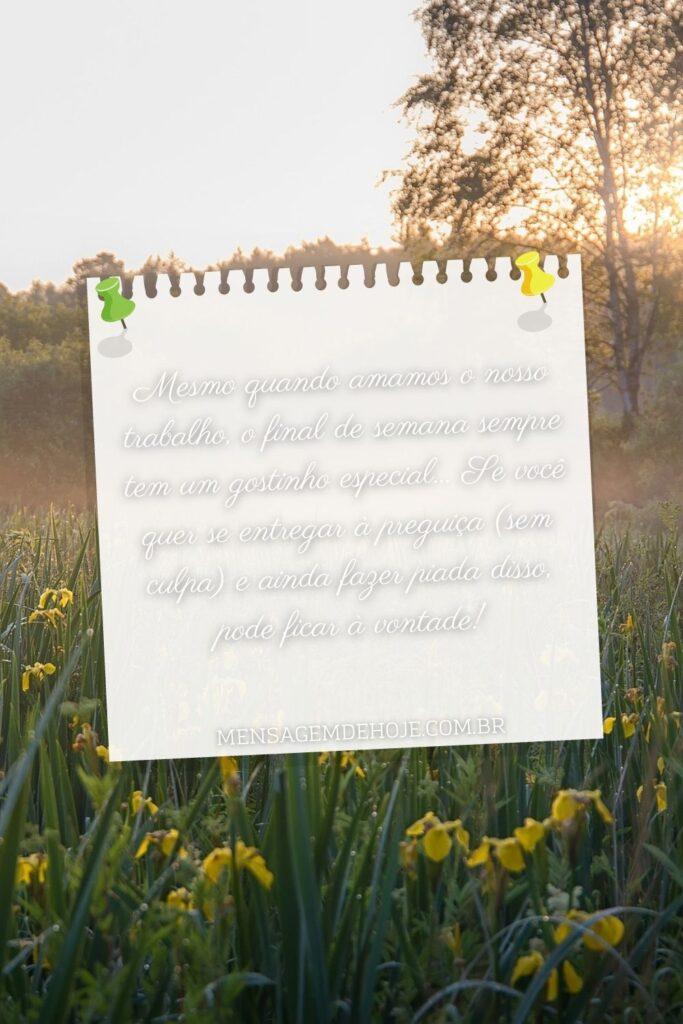 Mesmo quando amamos o nosso
trabalho, o final de semana sempre
tem um gostinho especial... Se você
quer se entregar à preguiça (sem
culpa) e ainda fazer piada disso,
pode ficar à vontade!
MENSAGEMDEHOJE.COM.BR